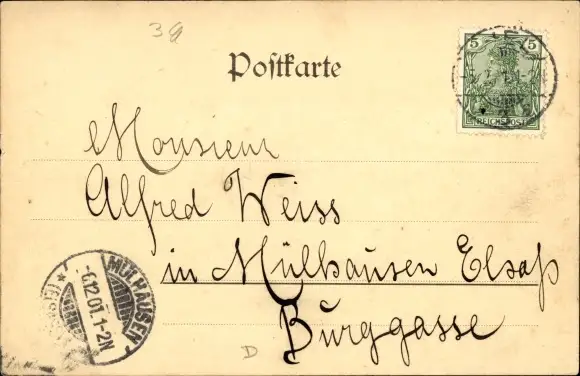 39
Postkarte
5 5
REICHSPOST
Monsieur
Alfred Weiss
in Mülhausen Elsaß
Burggasse
MÜLHAUSEN
6.12.01.1-2N
D